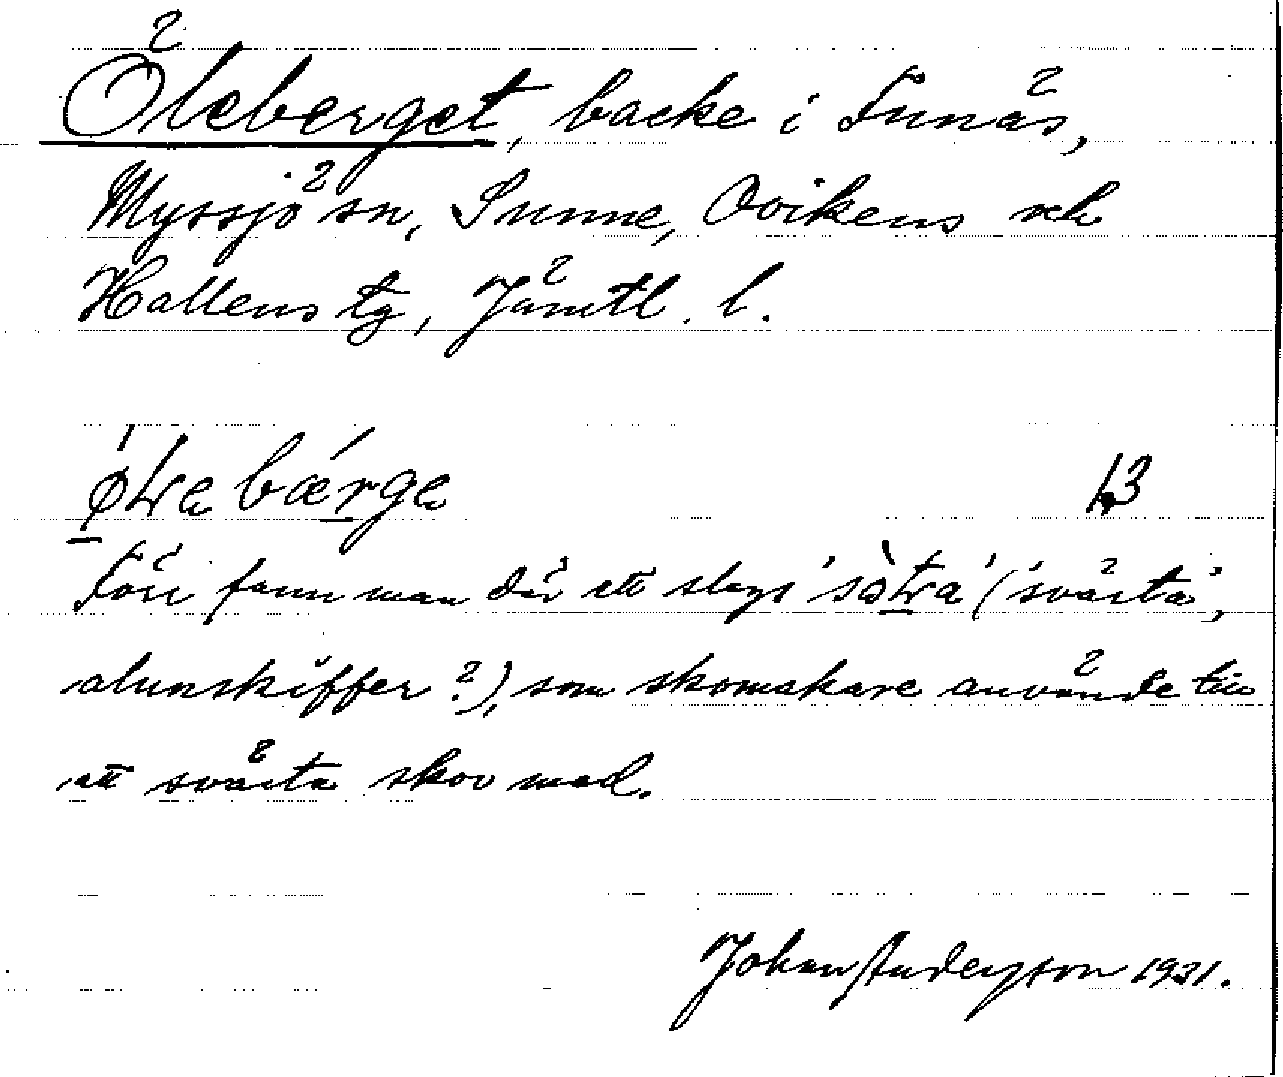 Öleberget, backe i Funäs,
Myssjö sn, Sunne, Ovikens och
Hallens tg, Jämtl. l.
bærga
Förr fann man där ett slags ('svärta',
alunskiffer?), som skomakare använde till
att svärta skor med.
Johan Andersson 1931.